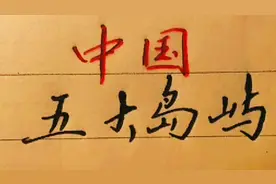 中国
五大岛屿